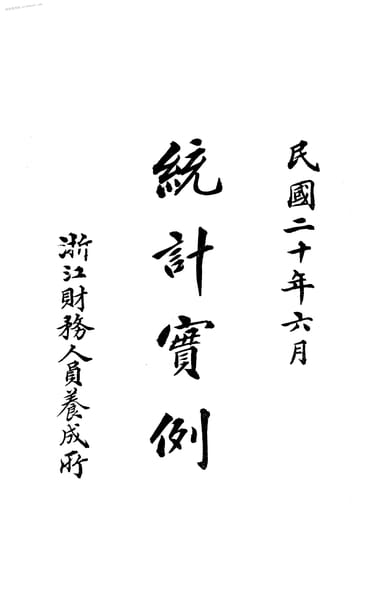 民國二十年六月
統計實例
浙江財務人員養成所